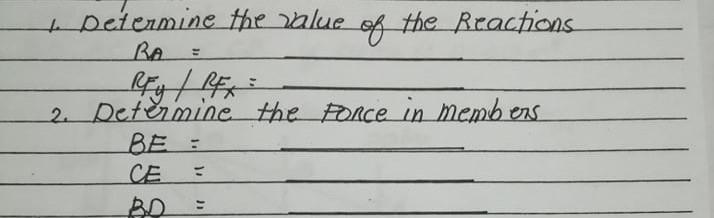 1. Determine the value of the Reactions
RA = ________
RFy / RFx = ________
2. Determine the Force in members
BE = ________
CE = ________
BD = ________